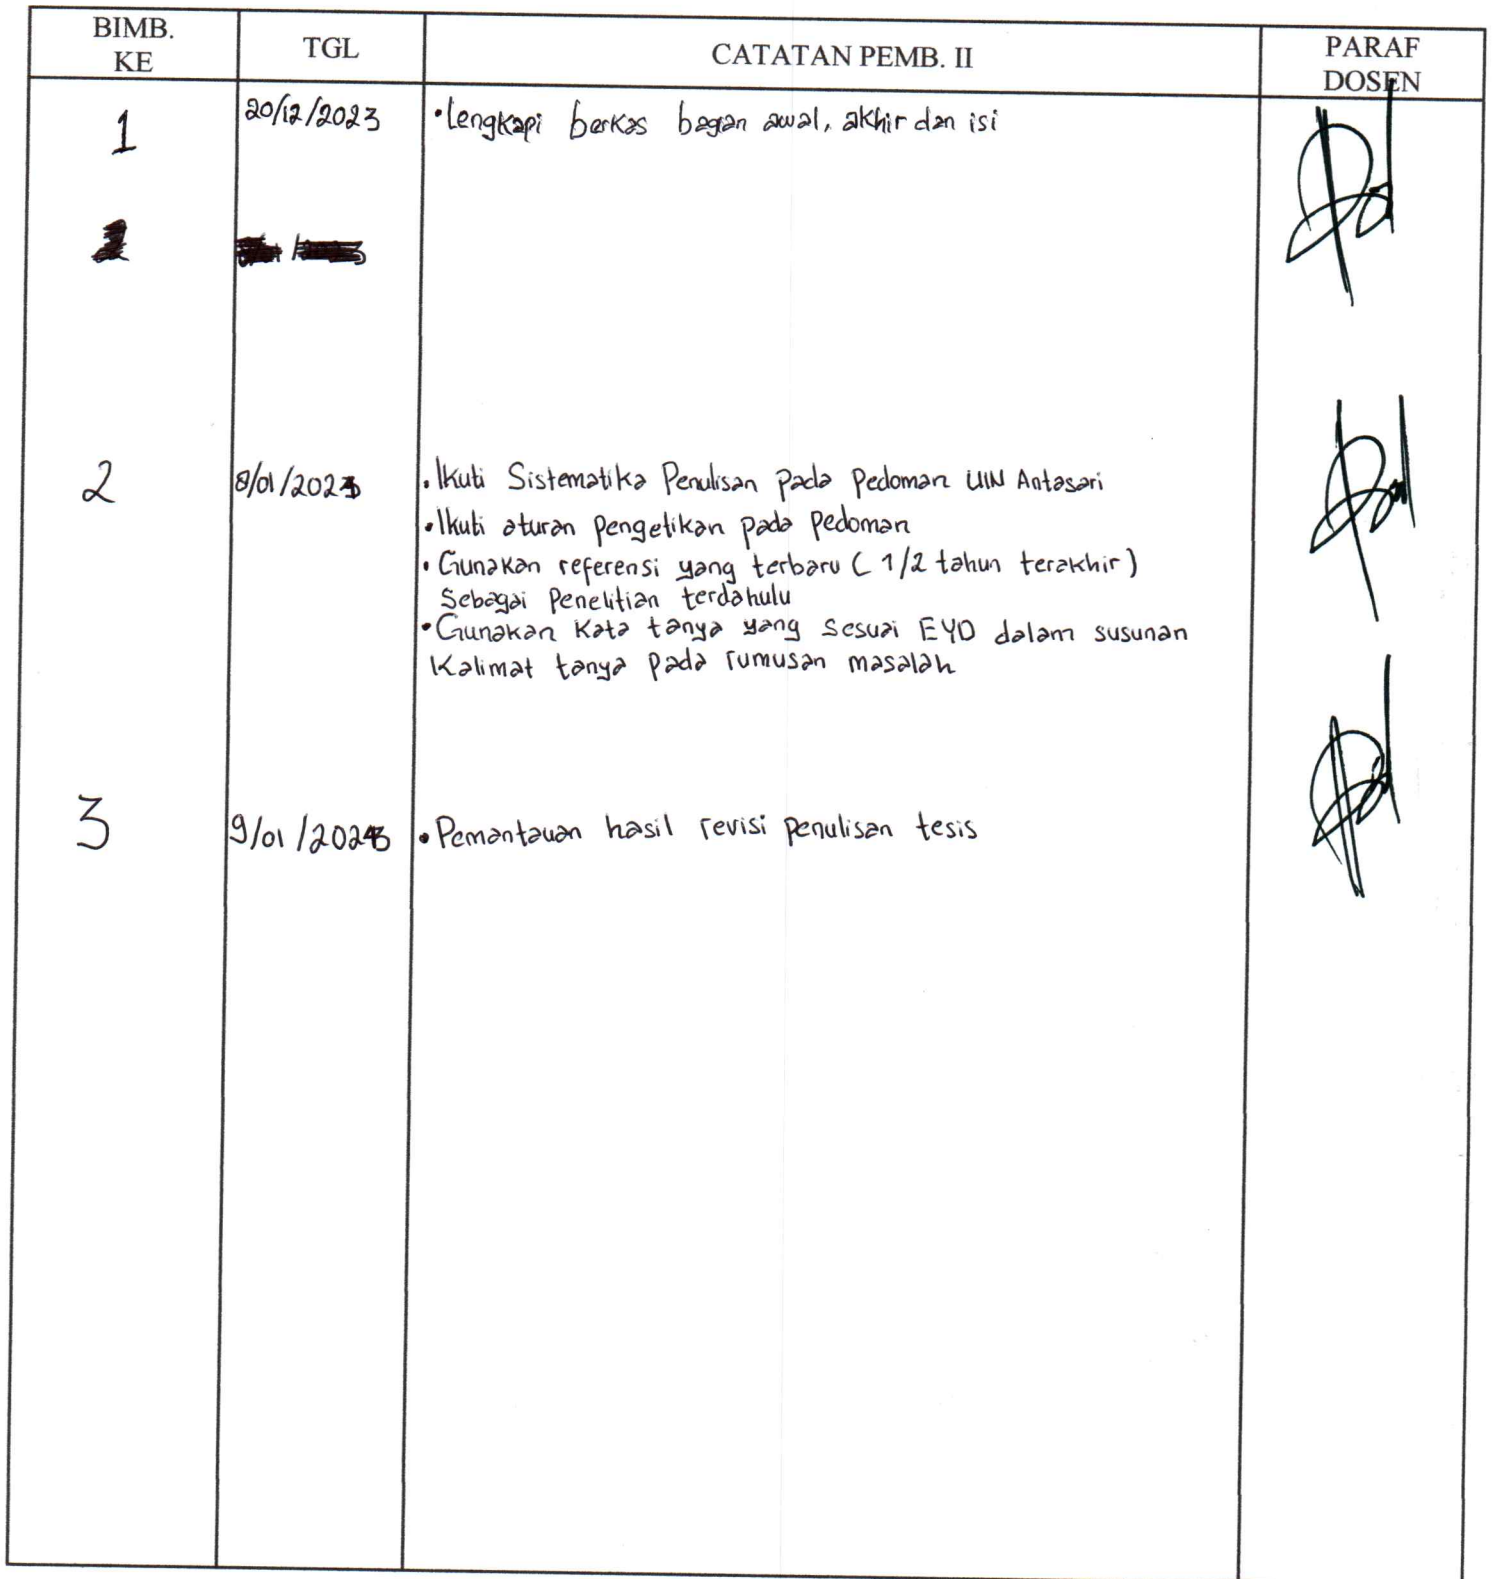 BIMB. KE TGL CATATAN PEMB. II PARAF DOSEN
1 20/12/2023 • Lengkapi berkas bagian awal, akhir dan isi
2 8/01/2023 • Ikuti Sistematika Penulisan pada Pedoman UIN Antasari
• Ikuti aturan pengetikan pada Pedoman
• Gunakan referensi yang terbaru ( 1/2 tahun terakhir )
Sebagai Penelitian terdahulu
• Gunakan Kata tanya yang sesuai EYD dalam susunan
Kalimat tanya pada rumusan masalah
3 9/01/2023 • Pemantauan hasil revisi penulisan tesis